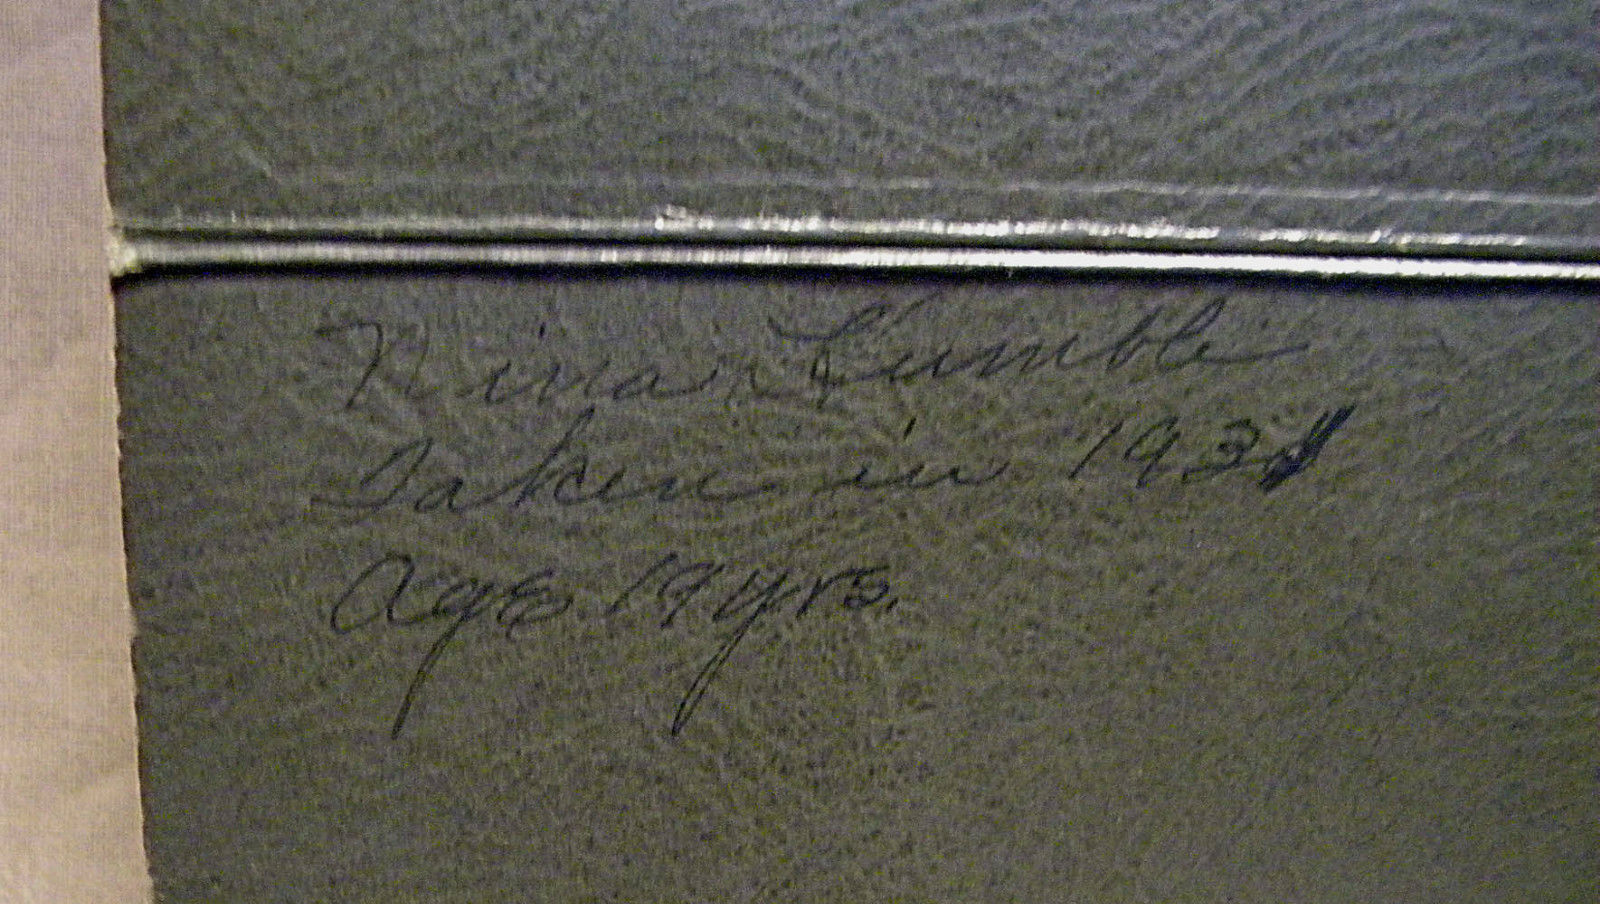 Nina Kumble
Taken in 1931
Age 19 yrs.